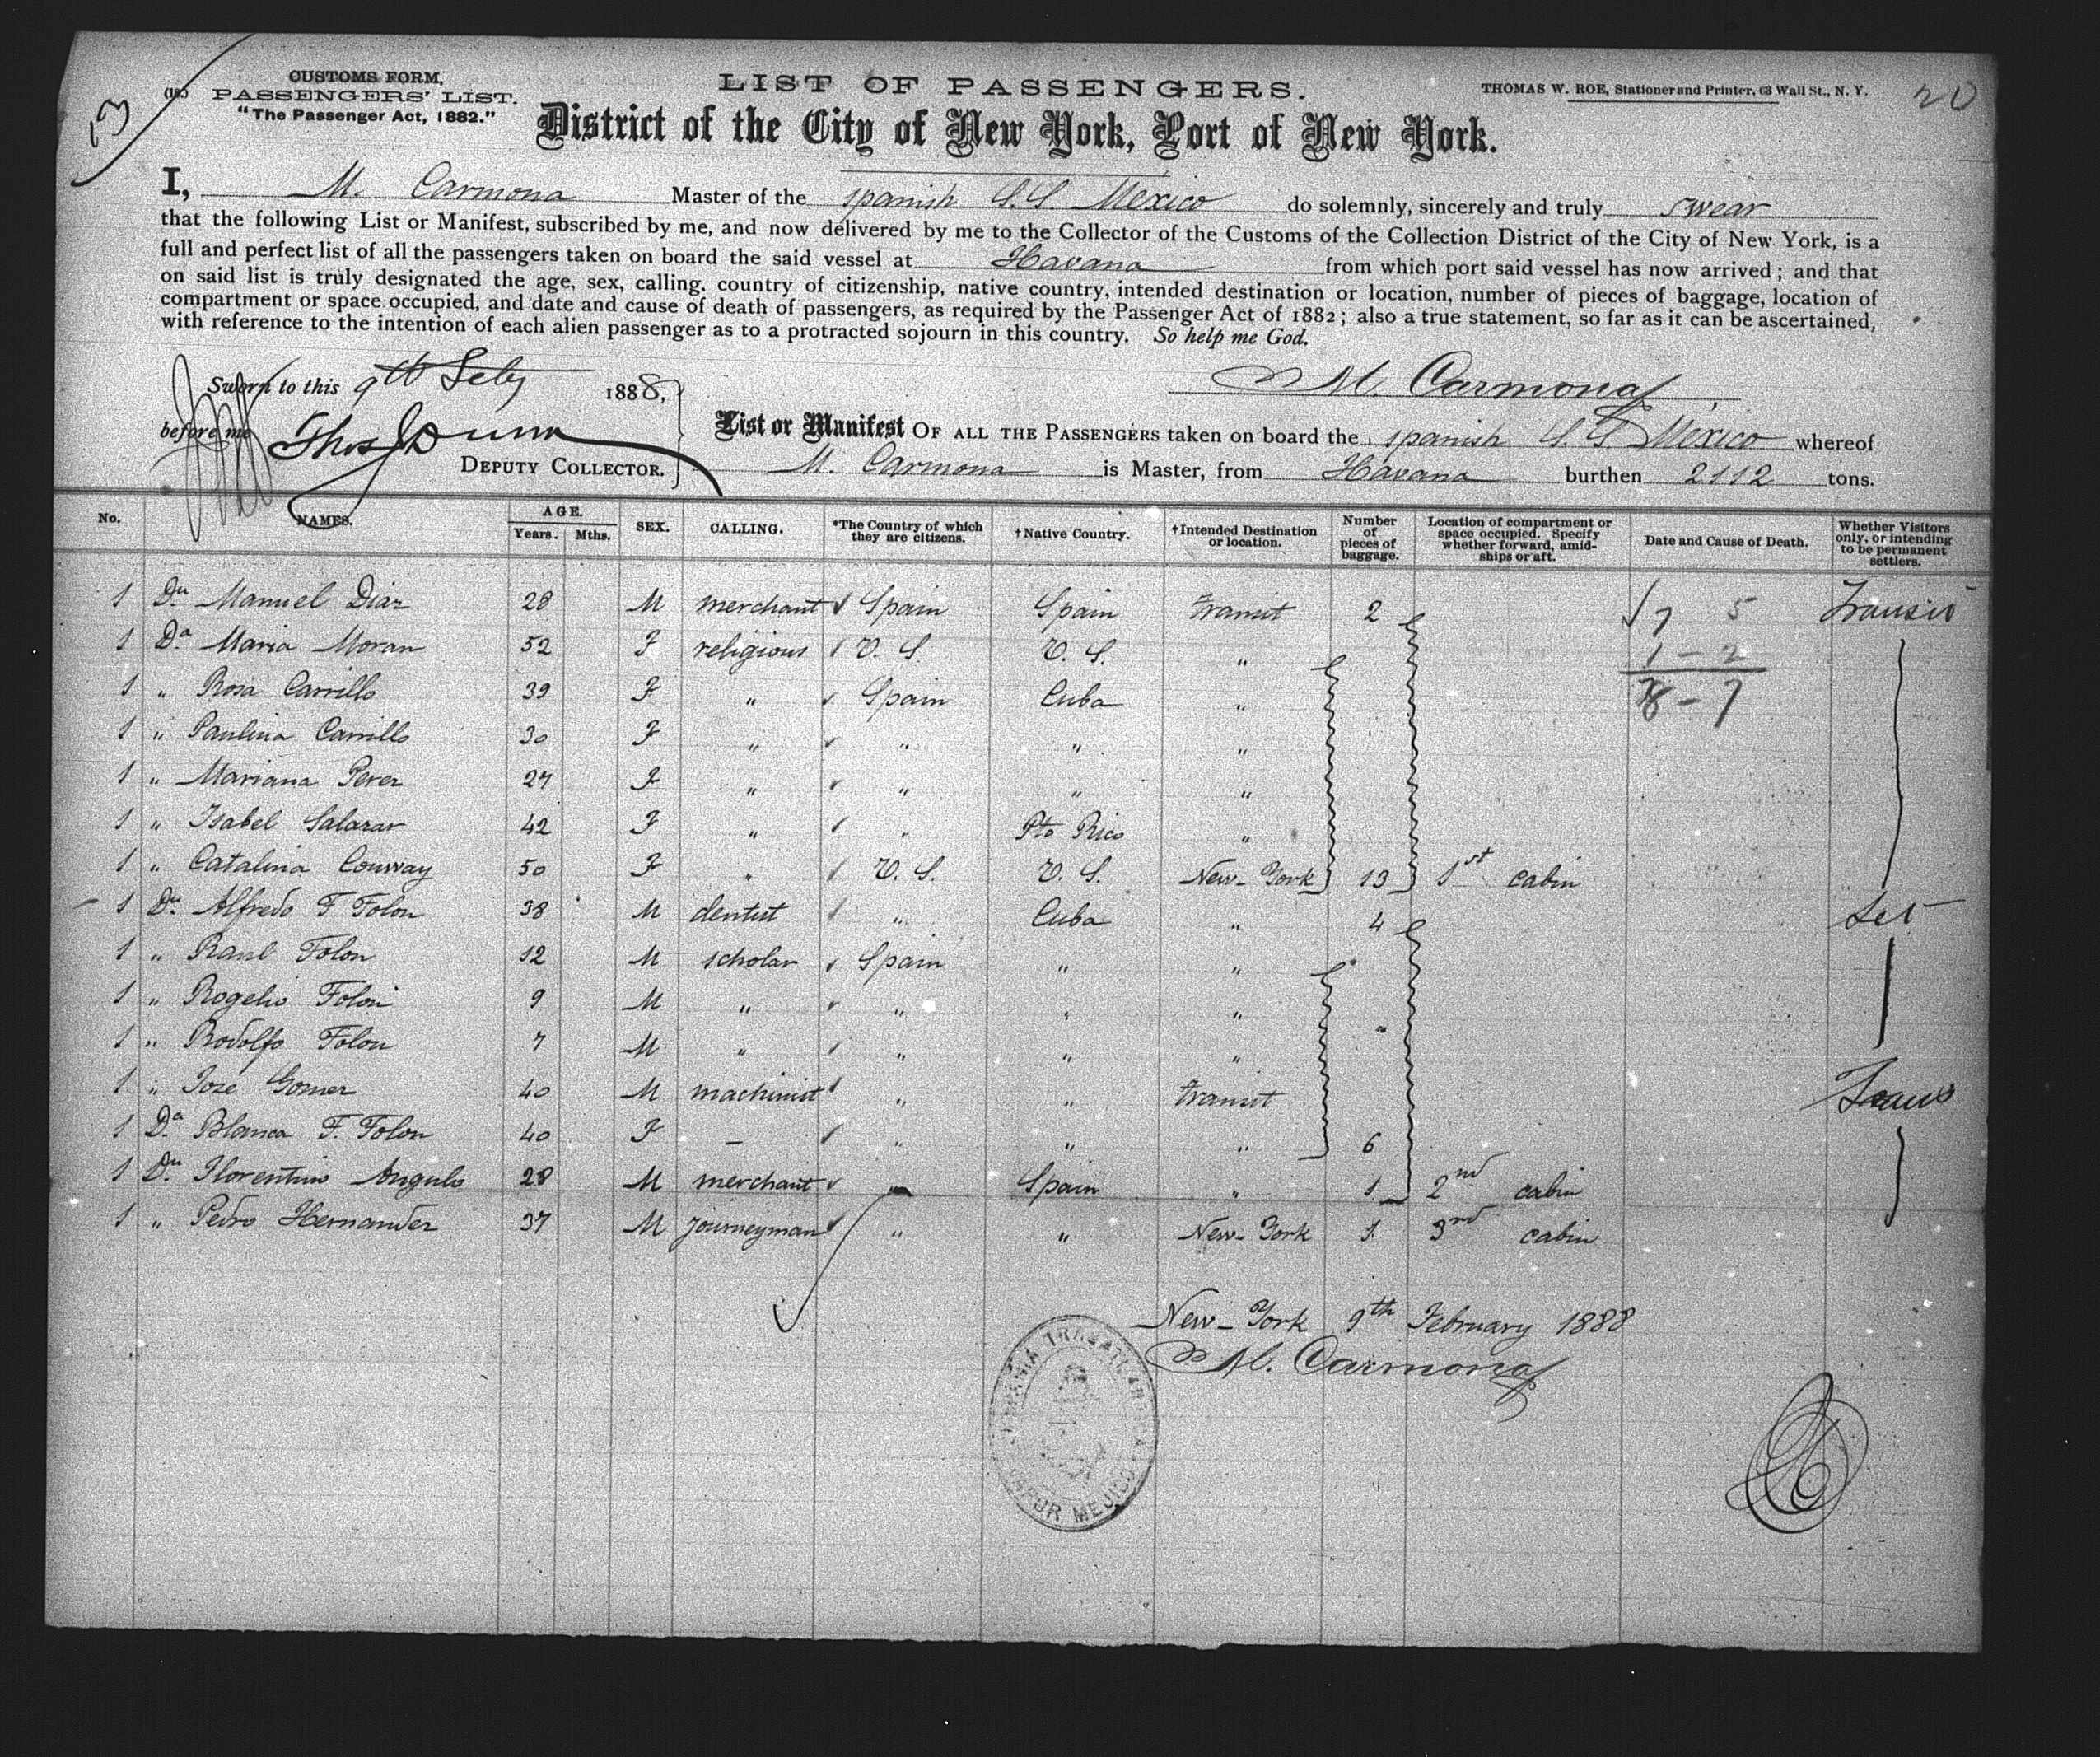 53
20
CUSTOMS FORM,
PASSENGERS' LIST.
"The Passenger Act, 1882."
LIST OF PASSENGERS.
THOMAS W. ROE, Stationer and Printer, 63 Wall St., N. Y.
District of the City of New York, Port of New York.
I, M. Carmona Master of the spanish S.S Mexico do solemnly, sincerely and truly swear
that the following List or Manifest, subscribed by me, and now delivered by me to the Collector of the Customs of the Collection District of the City of New York, is a
full and perfect list of all the passengers taken on board the said vessel at Havana from which port said vessel has now arrived; and that
on said list is truly designated the age, sex, calling. country of citizenship, native country, intended destination or location, number of pieces of baggage, location of
compartment or space occupied, and date and cause of death of passengers, as required by the Passenger Act of 1882; also a true statement, so far as it can be ascertained,
with reference to the intention of each alien passenger as to a protracted sojourn in this country. So help me God.
Sworn to this 9th Feby 1888,
M. Carmona
before me Thos J Dunn
DEPUTY COLLECTOR.
List or Manifest OF ALL THE PASSENGERS taken on board the spanish S.S Mexico whereof
M. Carmona is Master, from Havana burthen 2112 tons.
No. NAMES. AGE. Years. Mths. SEX. CALLING. *The Country of which they are citizens. †Native Country. †Intended Destination or location. Number of pieces of baggage. Location of compartment or space occupied. Specify whether forward, amidships or aft. Date and Cause of Death. Whether Visitors only, or intending to be permanent settlers.
1 Dn Manuel Diaz 28 M merchant Spain Spain transit 2 7 5 Transit
1 Da Maria Moran 52 F religious U. S. U. S. " 1 - 2
1 " Rosa Carrillo 39 F " Spain Cuba " 8 - 7
1 " Paulina Carrillo 30 F " " " "
1 " Mariana Perez 27 F " " " "
1 " Isabel Salazar 42 F " " Pto Rico "
1 " Catalina Conway 50 F " U. S. U. S. New-York 13 1st cabin
1 Dn Alfredo F Tolon 38 M dentist " Cuba " 4 Set
1 " Raul Tolon 12 M scholar Spain " "
1 " Rogelio Tolon 9 M " " " "
1 " Rodolfo Tolon 7 M " " " " "
1 " Jose Gomez 40 M machinist " " transit Trans
1 Da Blanca F. Tolon 40 F - " " " 6
1 Dn Florentino Angulo 28 M merchant " Spain " 1 2nd cabin
1 " Pedro Hernandez 37 M journeyman " " New-York 1 3rd cabin
New-York 9th February 1888
M. Carmona
VAPOR MEJICO